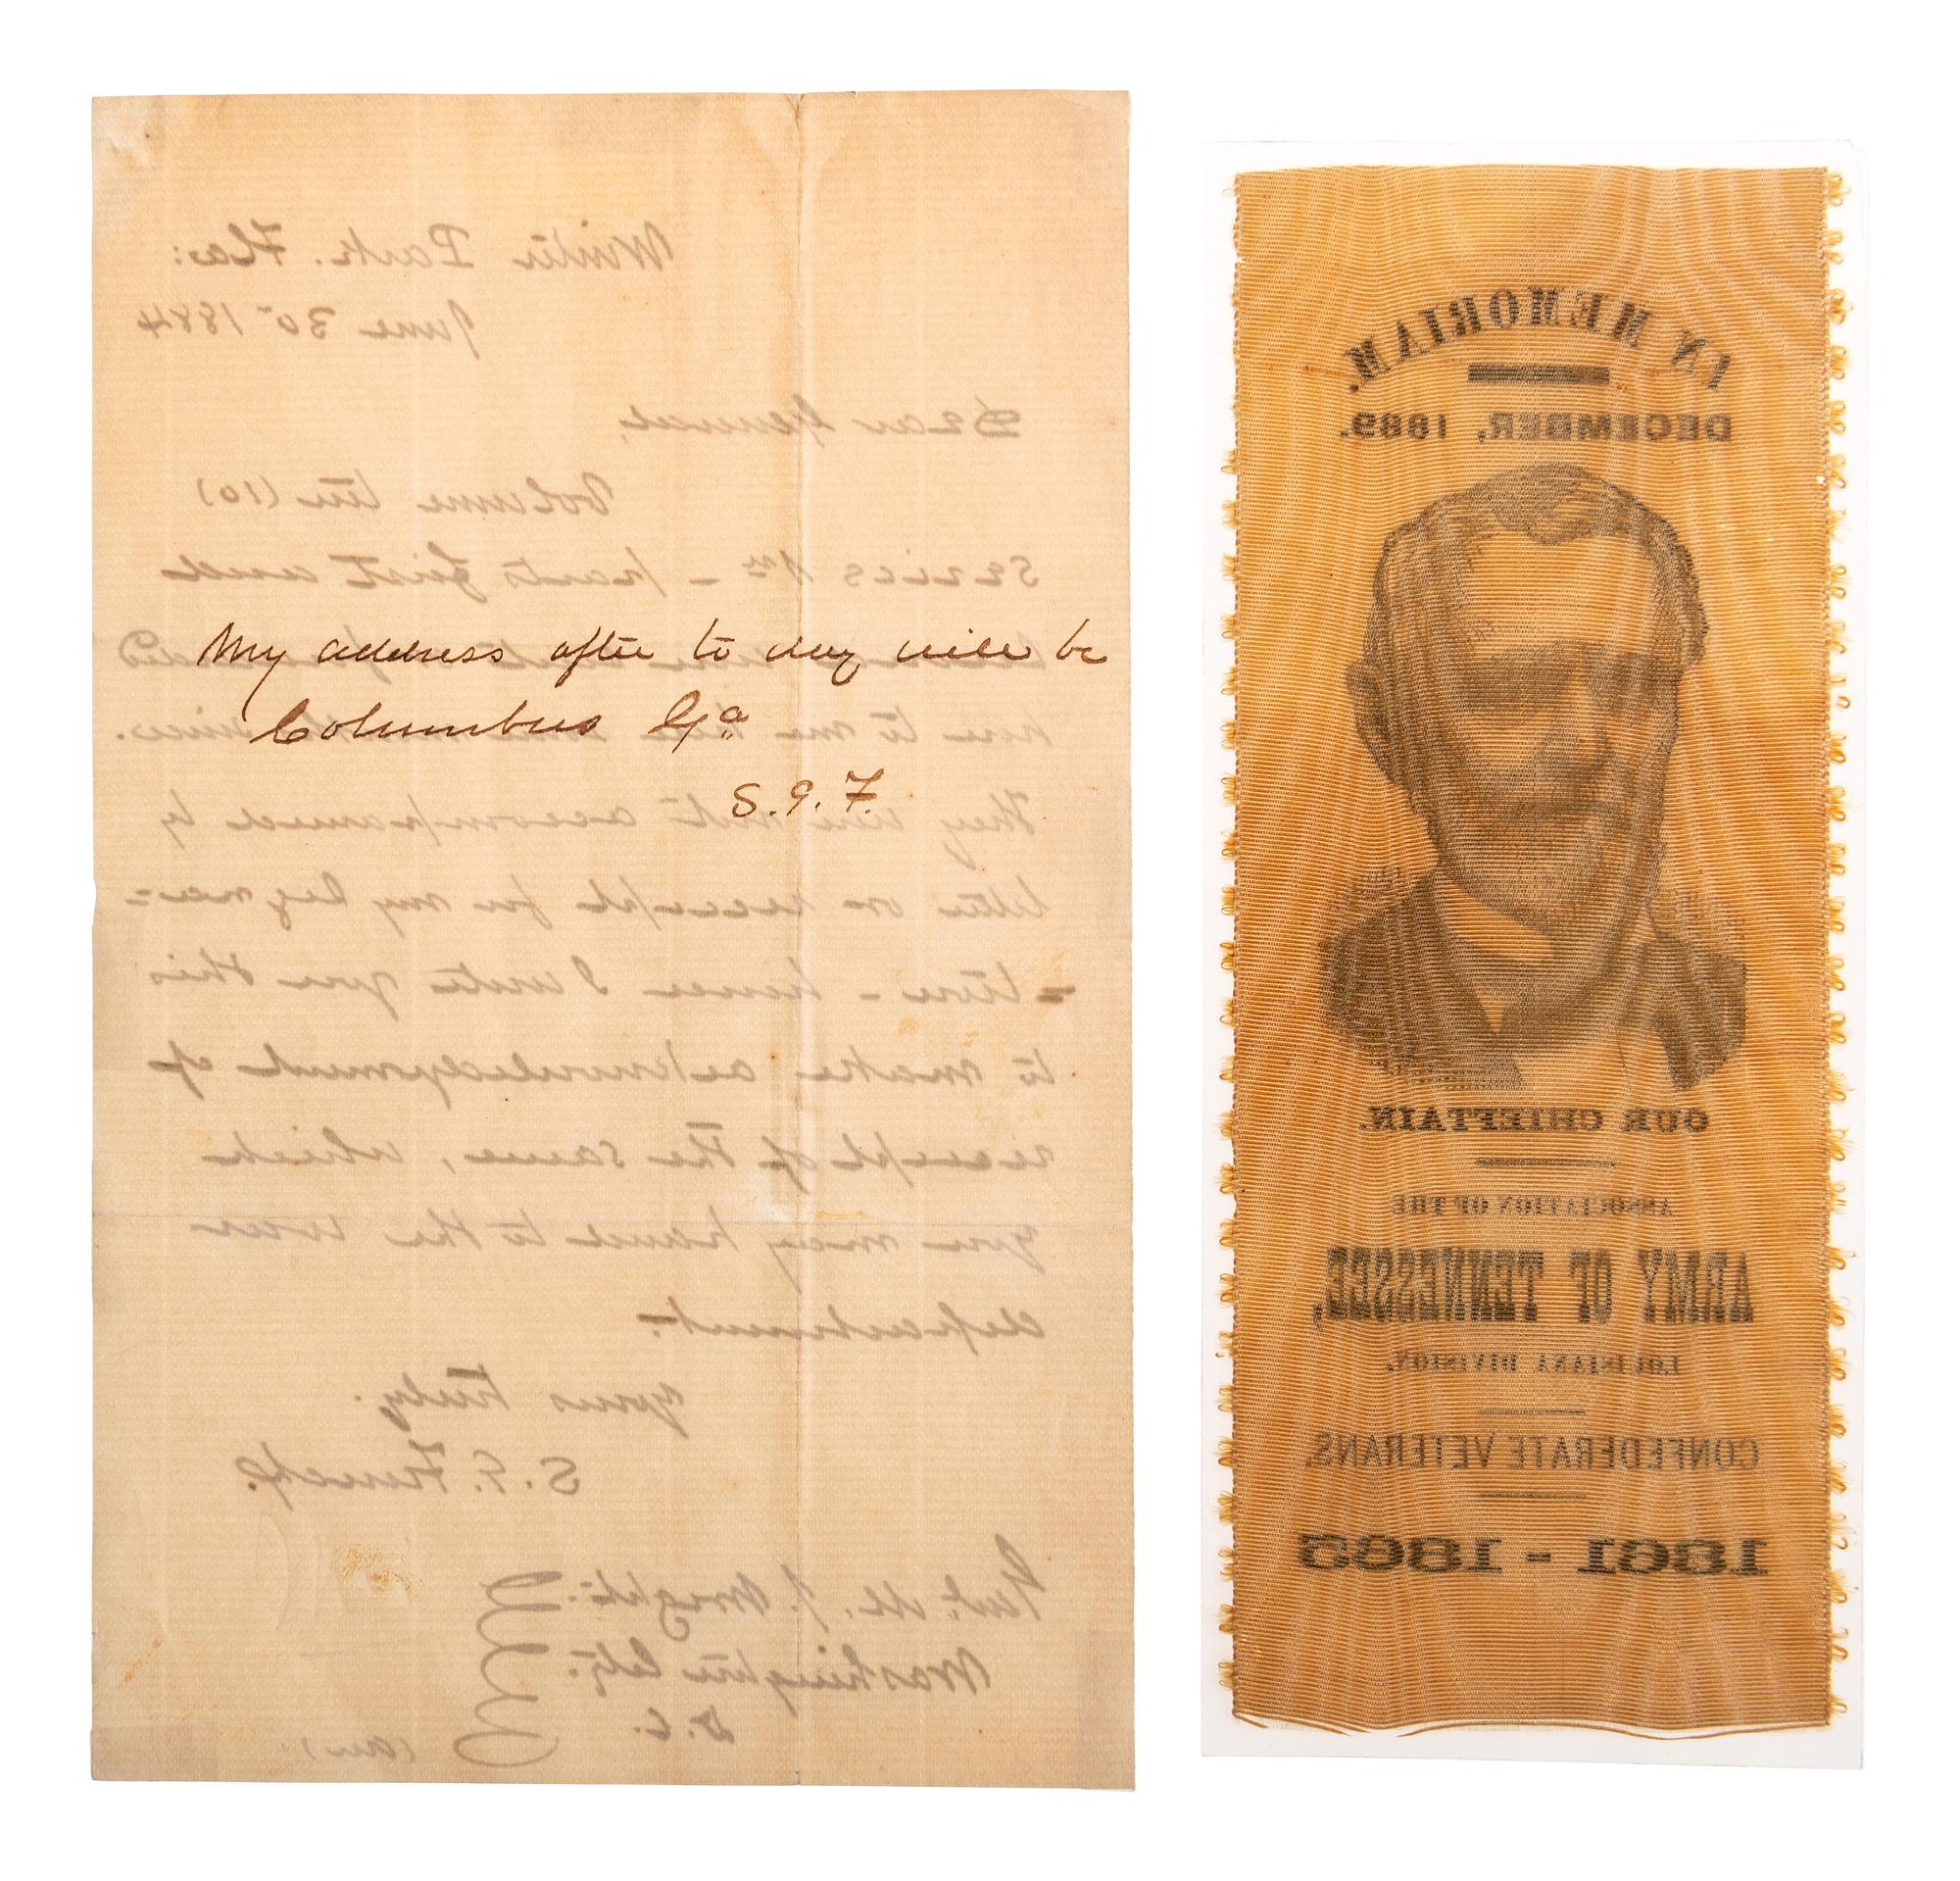 Winter Park. Fla:
June 30 1884
Dear General,
Volume ten (10)
Series 1st - parts first and
here to me
They were not accompanied by
letter or receipt for my signa=
=ture - hence I write you this
to make acknowledgment of
receipt of the same, which
you may hand to the War
department.
Yours truly,
S. G. French.
Genl. M. J. Wright.
Washington City.
D. C.
(over)
My address after to day will be
Columbus Ga
S. G. F.
IN MEMORIAM.
DECEMBER, 1889.
OUR CHIEFTAIN.
ASSOCIATION OF THE
ARMY OF TENNESSEE,
LOUISIANA DIVISION.
CONFEDERATE VETERANS.
1861 - 1865